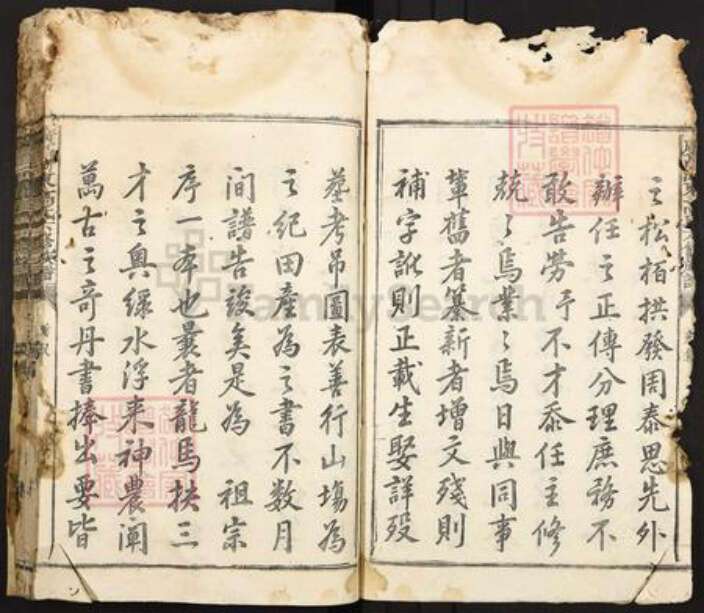 之松栢拱發周泰思先外
辦任之正傳分理庶務不
敢告勞予不才忝任主修
兢々焉業々焉日與同事
輩舊者纂新者增文殘則
補字訛則正載生娶詳歿
墓考吊圖表善行山塲為
之紀田産為之書不数月
間譜告竣矣是為 祖宗
序一夲也曩者龍馬扶三
才之輿綠水浮来神農闡
萬古之竒丹書捧出要皆
FamilySearch